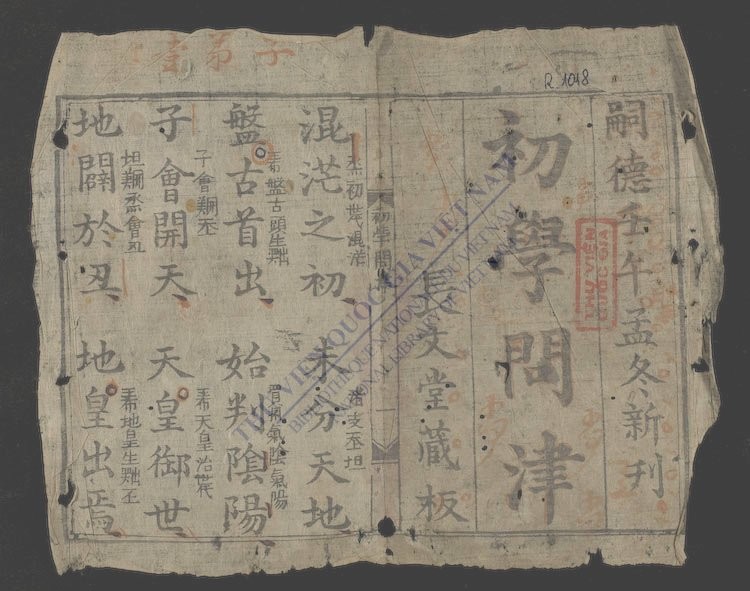 R.1018
嗣德壬午孟冬新刊
初學問津
長文堂藏板
初學問津
一
混茫之初、未分天地、
初世混茫
盤古首出、始判陰陽、
盤古頭生
氣陰氣陽
子會開天、天皇御世、
子會
天皇治世
地闢於丑、地皇出焉、
坦 會丑
地皇生
THƯ VIỆN QUỐC GIA VIỆT NAM
BIBLIOTHÈQUE NATIONALE DU VIETNAM
NATIONAL LIBRARY OF VIETNAM